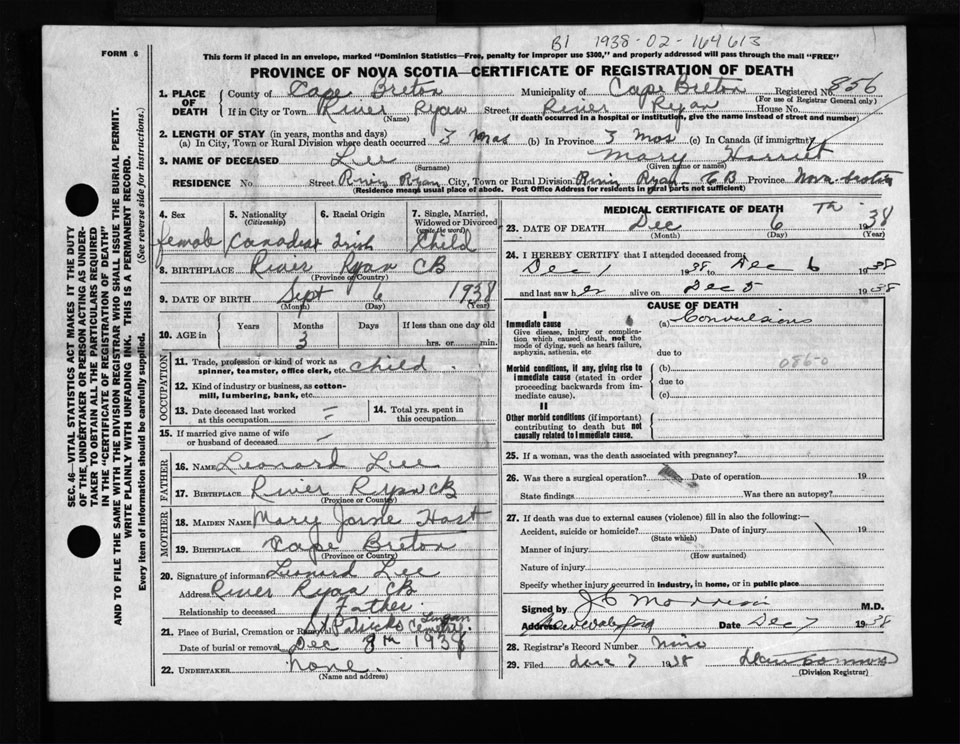 B1 1938-02-164613
FORM 6
This form if placed in an envelope, marked "Dominion Statistics—Free, penalty for improper use $300," and properly addressed will pass through the mail "FREE"
PROVINCE OF NOVA SCOTIA—CERTIFICATE OF REGISTRATION OF DEATH
1. PLACE OF DEATH
County of Cape Breton Municipality of Cape Breton Registered No. 856
(For use of Registrar General only)
If in City or Town River Ryan Street River Ryan House No.
(Name) (If death occurred in a hospital or institution, give the name instead of street and number)
2. LENGTH OF STAY (in years, months and days)
(a) In City, Town or Rural Division where death occurred 3 mos (b) In Province 3 Mos (c) In Canada (if immigrant)
3. NAME OF DECEASED Lee Mary Harriet
(Surname) (Given name or names)
RESIDENCE No. Street River Ryan City, Town or Rural Division River Ryan CB Province Nova-Scotia
(Residence means usual place of abode. Post Office Address for residents in rural parts not sufficient)
4. Sex
female
5. Nationality
(Citizenship)
Canadian
6. Racial Origin
Irish
7. Single, Married, Widowed or Divorced
(write the word)
Child
8. BIRTHPLACE River Ryan CB
(Province or Country)
9. DATE OF BIRTH Sept 6 1938
(Month) (Day) (Year)
10. AGE in
Years Months Days If less than one day old
3 hrs. or min.
OCCUPATION
11. Trade, profession or kind of work as
spinner, teamster, office clerk, etc. Child
12. Kind of industry or business, as cotton-
mill, lumbering, bank, etc.
13. Date deceased last worked
at this occupation
14. Total yrs. spent in
this occupation
15. If married give name of wife
or husband of deceased
FATHER
16. NAME Leonard Lee
17. BIRTHPLACE River Ryan CB
(Province or Country)
MOTHER
18. MAIDEN NAME Mary
19. BIRTHPLACE Cape Breton
(Province or Country)
20. Signature of informant Leonard Lee
Address River Ryan CB
Relationship to deceased Father
21. Place of Burial, Cremation or Removal St Patricks Lingan Cemetery
Date of burial or removal Dec 8th 1938
22. UNDERTAKER None
(Name and address)
MEDICAL CERTIFICATE OF DEATH
23. DATE OF DEATH Dec 6 Th 1938
(Month) (Day) (Year)
24. I HEREBY CERTIFY that I attended deceased from
Dec 1 1938 to Dec 6 1938
and last saw her alive on Dec 5 1938
CAUSE OF DEATH
I
Immediate cause
Give disease, injury or complica-
tion which caused death, not the
mode of dying, such as heart failure,
asphyxia, asthenia, etc
(a) Convulsions
due to
Morbid conditions, if any, giving rise to
immediate cause (stated in order
proceeding backwards from im-
mediate cause).
(b) 086-0
due to
(c)
II
Other morbid conditions (if important)
contributing to death but not
causally related to immediate cause.
25. If a woman, was the death associated with pregnancy?
26. Was there a surgical operation? Date of operation 19
State findings Was there an autopsy?
27. If death was due to external causes (violence) fill in also the following:—
Accident, suicide or homicide? Date of injury 19
(State which)
Manner of injury
(How sustained)
Nature of injury
Specify whether injury occurred in industry, in home, or in public place
Signed by J C Morrison M.D.
Address New Waterford Date Dec 7 1938
28. Registrar's Record Number Nine
29. Filed 7 1938
(Division Registrar)
SEC. 46—VITAL STATISTICS ACT MAKES IT THE DUTY
OF THE UNDERTAKER OR PERSON ACTING AS UNDER-
TAKER TO OBTAIN ALL THE PARTICULARS REQUIRED
IN THE "CERTIFICATE OF REGISTRATION OF DEATH"
AND TO FILE THE SAME WITH THE DIVISION REGISTRAR WHO SHALL ISSUE THE BURIAL PERMIT.
WRITE PLAINLY WITH UNFADING INK. THIS IS A PERMANENT RECORD.
Every item of information should be carefully supplied. (See reverse side for instructions.)